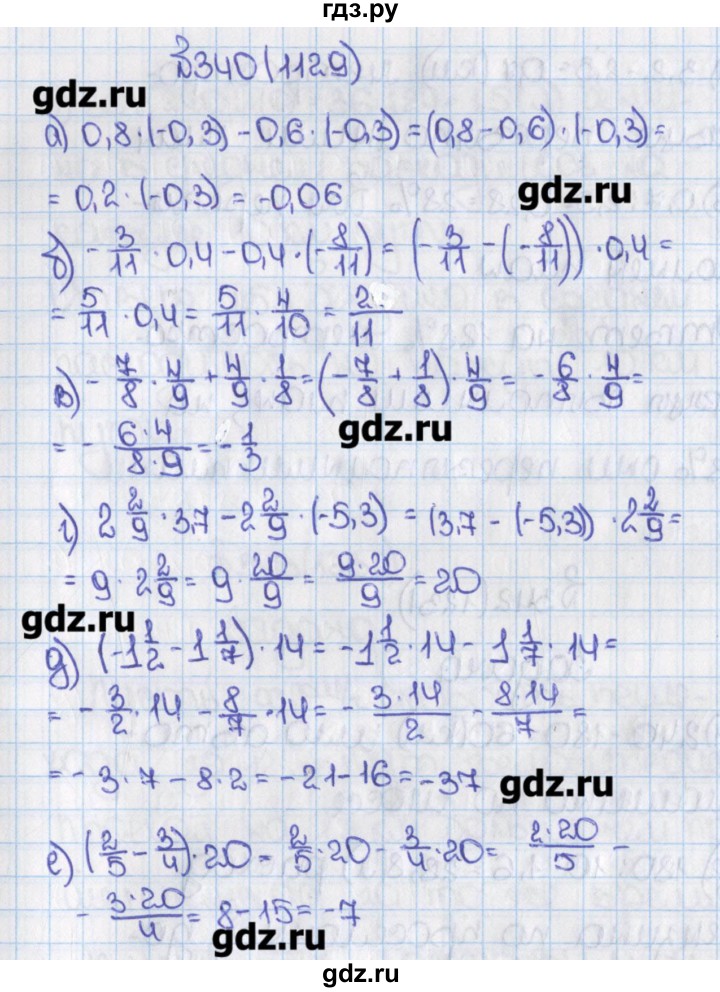 гдз.ру
№340(1129)
gdz.ru
а) 0,8·(-0,3) - 0,6·(-0,3) = (0,8-0,6)·(-0,3) =
= 0,2·(-0,3) = -0,06
gdz.ru
б) - 3/11 · 0,4 - 0,4·(- 8/11) = (- 3/11 - (- 8/11)) · 0,4 =
= 5/11 · 0,4 = 5/11 · 4/10 = 2/11
в) - 7/8 · 4/9 + 4/9 · 1/8 = (- 7/8 + 1/8) · 4/9 = - 6/8 · 4/9 =
gdz.ru
= - 6·4/8·9 = - 1/3
г) 2 2/9 · 3,7 - 2 2/9 · (-5,3) = (3,7 - (-5,3)) · 2 2/9 =
= 9 · 2 2/9 = 9 · 20/9 = 9·20/9 = 20
gdz.ru
д) (-1 1/2 - 1 1/7) · 14 = -1 1/2 · 14 - 1 1/7 · 14 =
= - 3/2 · 14 - 8/7 · 14 = - 3·14/2 - 8·14/7 =
= - 3·7 - 8·2 = -21-16 = -37
gdz.ru
е) (2/5 - 3/4) · 20 = 2/5 · 20 - 3/4 · 20 = 2·20/5 -
- 3·20/4 = 8-15 = -7
gdz.ru
gdz.ru